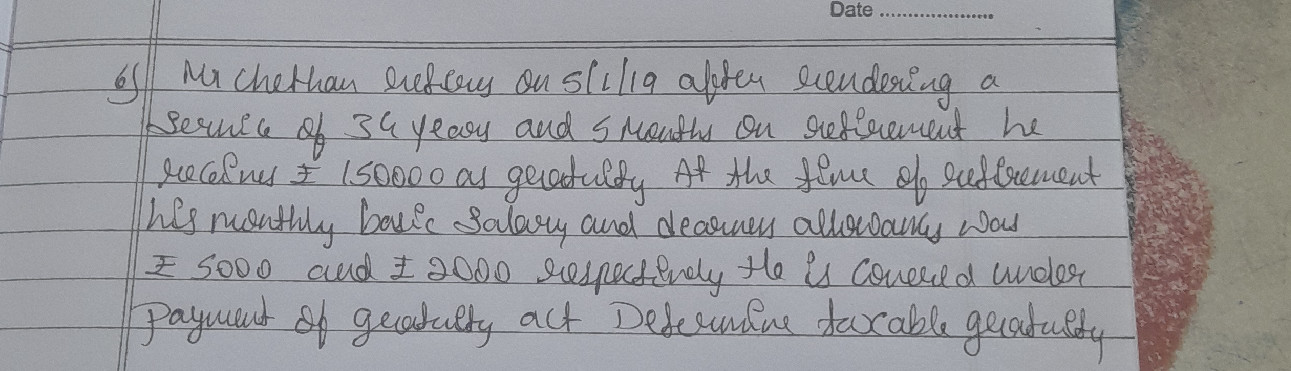 Date ....................
6) Mr Chethan retires on 5/1/19 after rendering a
service of 34 years and 5 Months on retirement he
receives ₹ 150000 as gratuity At the time of retirement
his monthly basic Salary and dearness allowances was
₹ 5000 and ₹ 2000 respectively He is covered under
payment of gratuity act Determine taxable gratuity